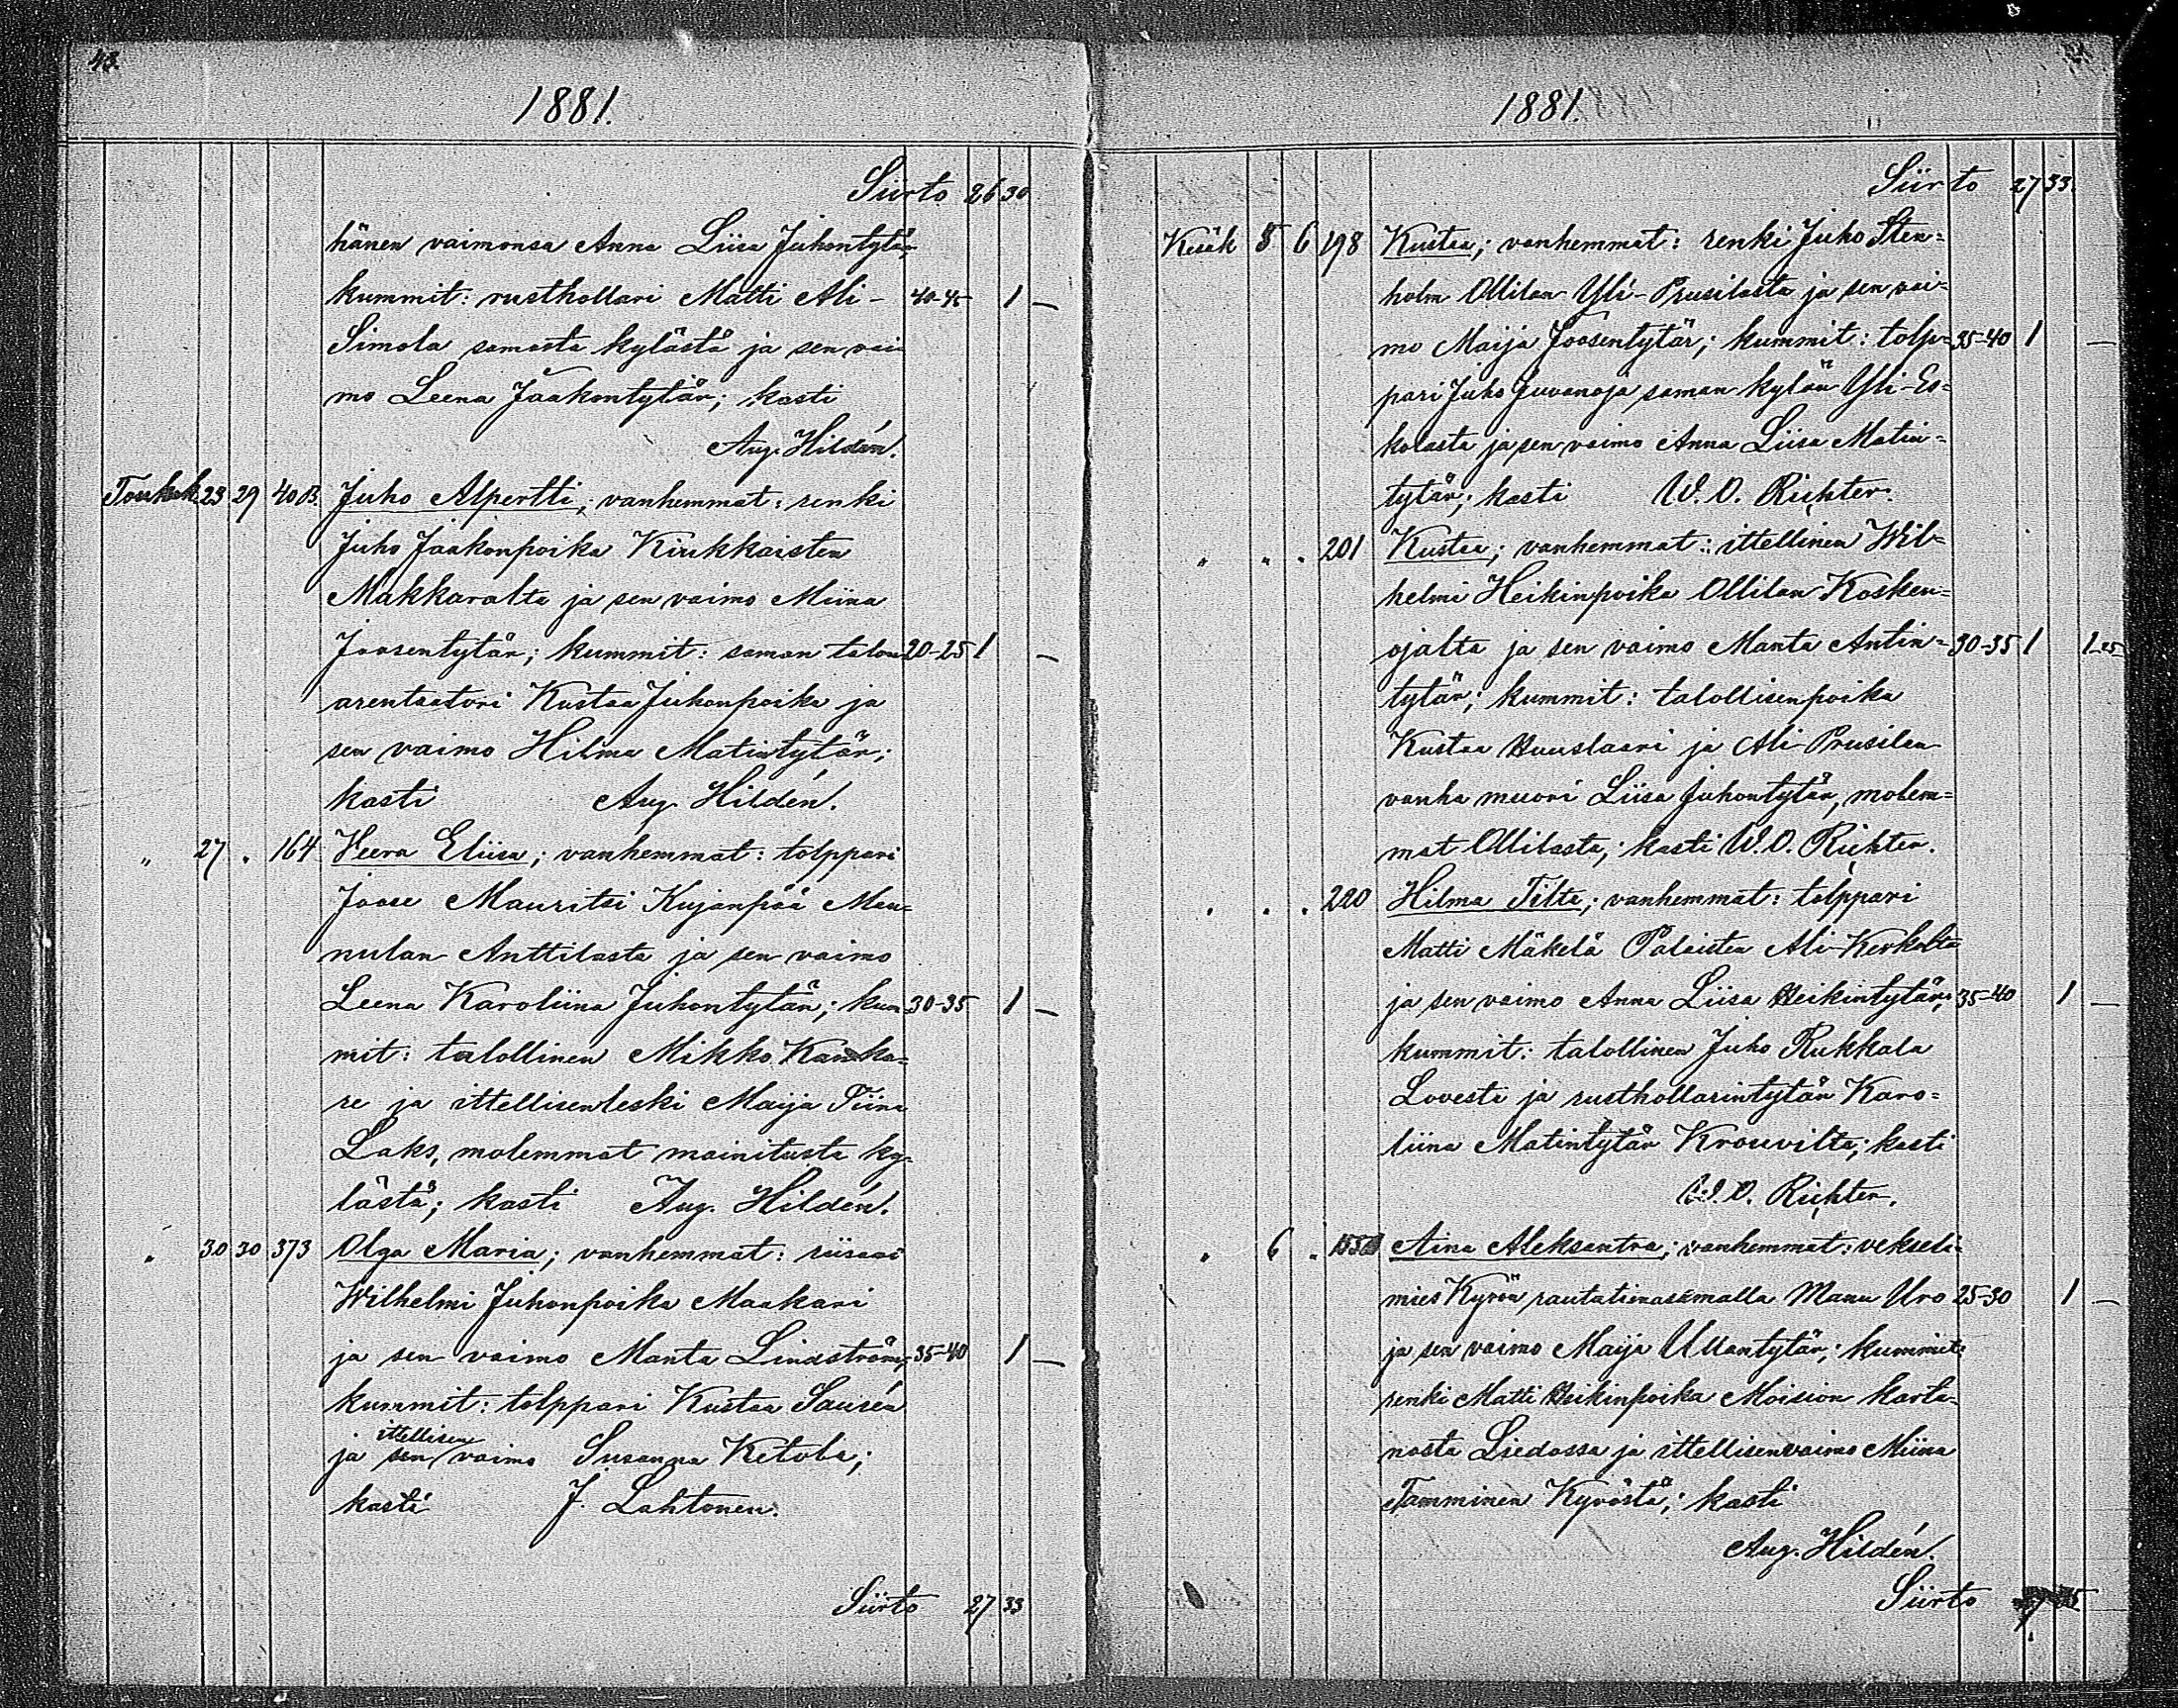 43.
1881.
Siirto 26 30
hänen vaimonsa Anna Liisa Juhontytär,
kummit: rusthollari Matti Ali- 40-45 1 —
Simola samasta kylästä ja sen vai
mo Leena Jaakontytär; kasti
Aug. Hildén.
Toukok. 23 29 40 B. Juho Alpertti; vanhemmat: renki
Juho Jaakonpoika Kiukkaisten
Makkaralta ja sen vaimo Miina
Joosentytär; kummit: saman talon 20-25 1 —
arentaatori Kustaa Juhonpoika ja
sen vaimo Hilma Matintytär;
kasti Aug. Hildén.
" 27 " 164 Veera Eliisa; vanhemmat: tolppari
Joose Mauritsi Kujanpää Man=
nulan Anttilasta ja sen vaimo
Leena Karoliina Juhontytär; kum= 30-35 1 —
mit: talollinen Mikko Kanka=
re ja ittellisenleski Maija Tiina
Laks, molemmat mainitusta ky=
lästä; kasti Aug. Hildén.
" 30 30 373 Olga Maria; vanhemmat:
Wilhelmi Juhonpoika Maakari
ja sen vaimo Manta Lindström; 35-40 1 —
kummit: tolppari Kustaa Saurén
ja sen ittellisen vaimo Susanna Ketola;
kasti J. Lahtonen.
Siirto 27 33
1881.
Siirto 27 33.
Kesäk 5 6 198 Kustaa; vanhemmat: renki Juho Sten=
holm Ollilan Yli-Prusilasta ja sen vai=
mo Maija Joosentytär; kummit: tolp= 35-40 1 —
pari Juho Juvanoja saman kylän Yli-Es=
kolasta ja sen vaimo Anna Liisa Matin=
tytär; kasti W. O. Richter.
" " " 201 Kustaa; vanhemmat: ittellinen Wil=
helmi Heikinpoika Ollilan Kosken=
ojalta ja sen vaimo Manta Antin= 30-35 1 1 25
tytär; kummit: talollisenpoika
Kustaa Huuslaari ja Ali-Prusilan
vanha muori Liisa Juhontytär, molem=
mat Ollilasta; kasti W. O. Richter.
" " " 220 Hilma Tilta; vanhemmat: tolppari
Matti Mäkelä Palaisten Ali-Kerkolta
ja sen vaimo Anna Liisa Heikintytär; 35-40 1 —
kummit: talollinen Juho Rukkala
Lovesta ja rusthollarintytär Karo=
liina Matintytär Krouvilta; kasti
W. O. Richter.
" 6 " Aina Aleksantra; vanhemmat: vekseli=
mies Kyrön rautatienasemalla Manu Uro 25-30 1 —
ja sen vaimo Maija Ullantytär; kummit:
renki Matti Heikinpoika Moision karta=
nosta Liedossa ja ittellisenvaimo Miina
Tamminen Kyröstä; kasti
Aug. Hildén.
Siirto